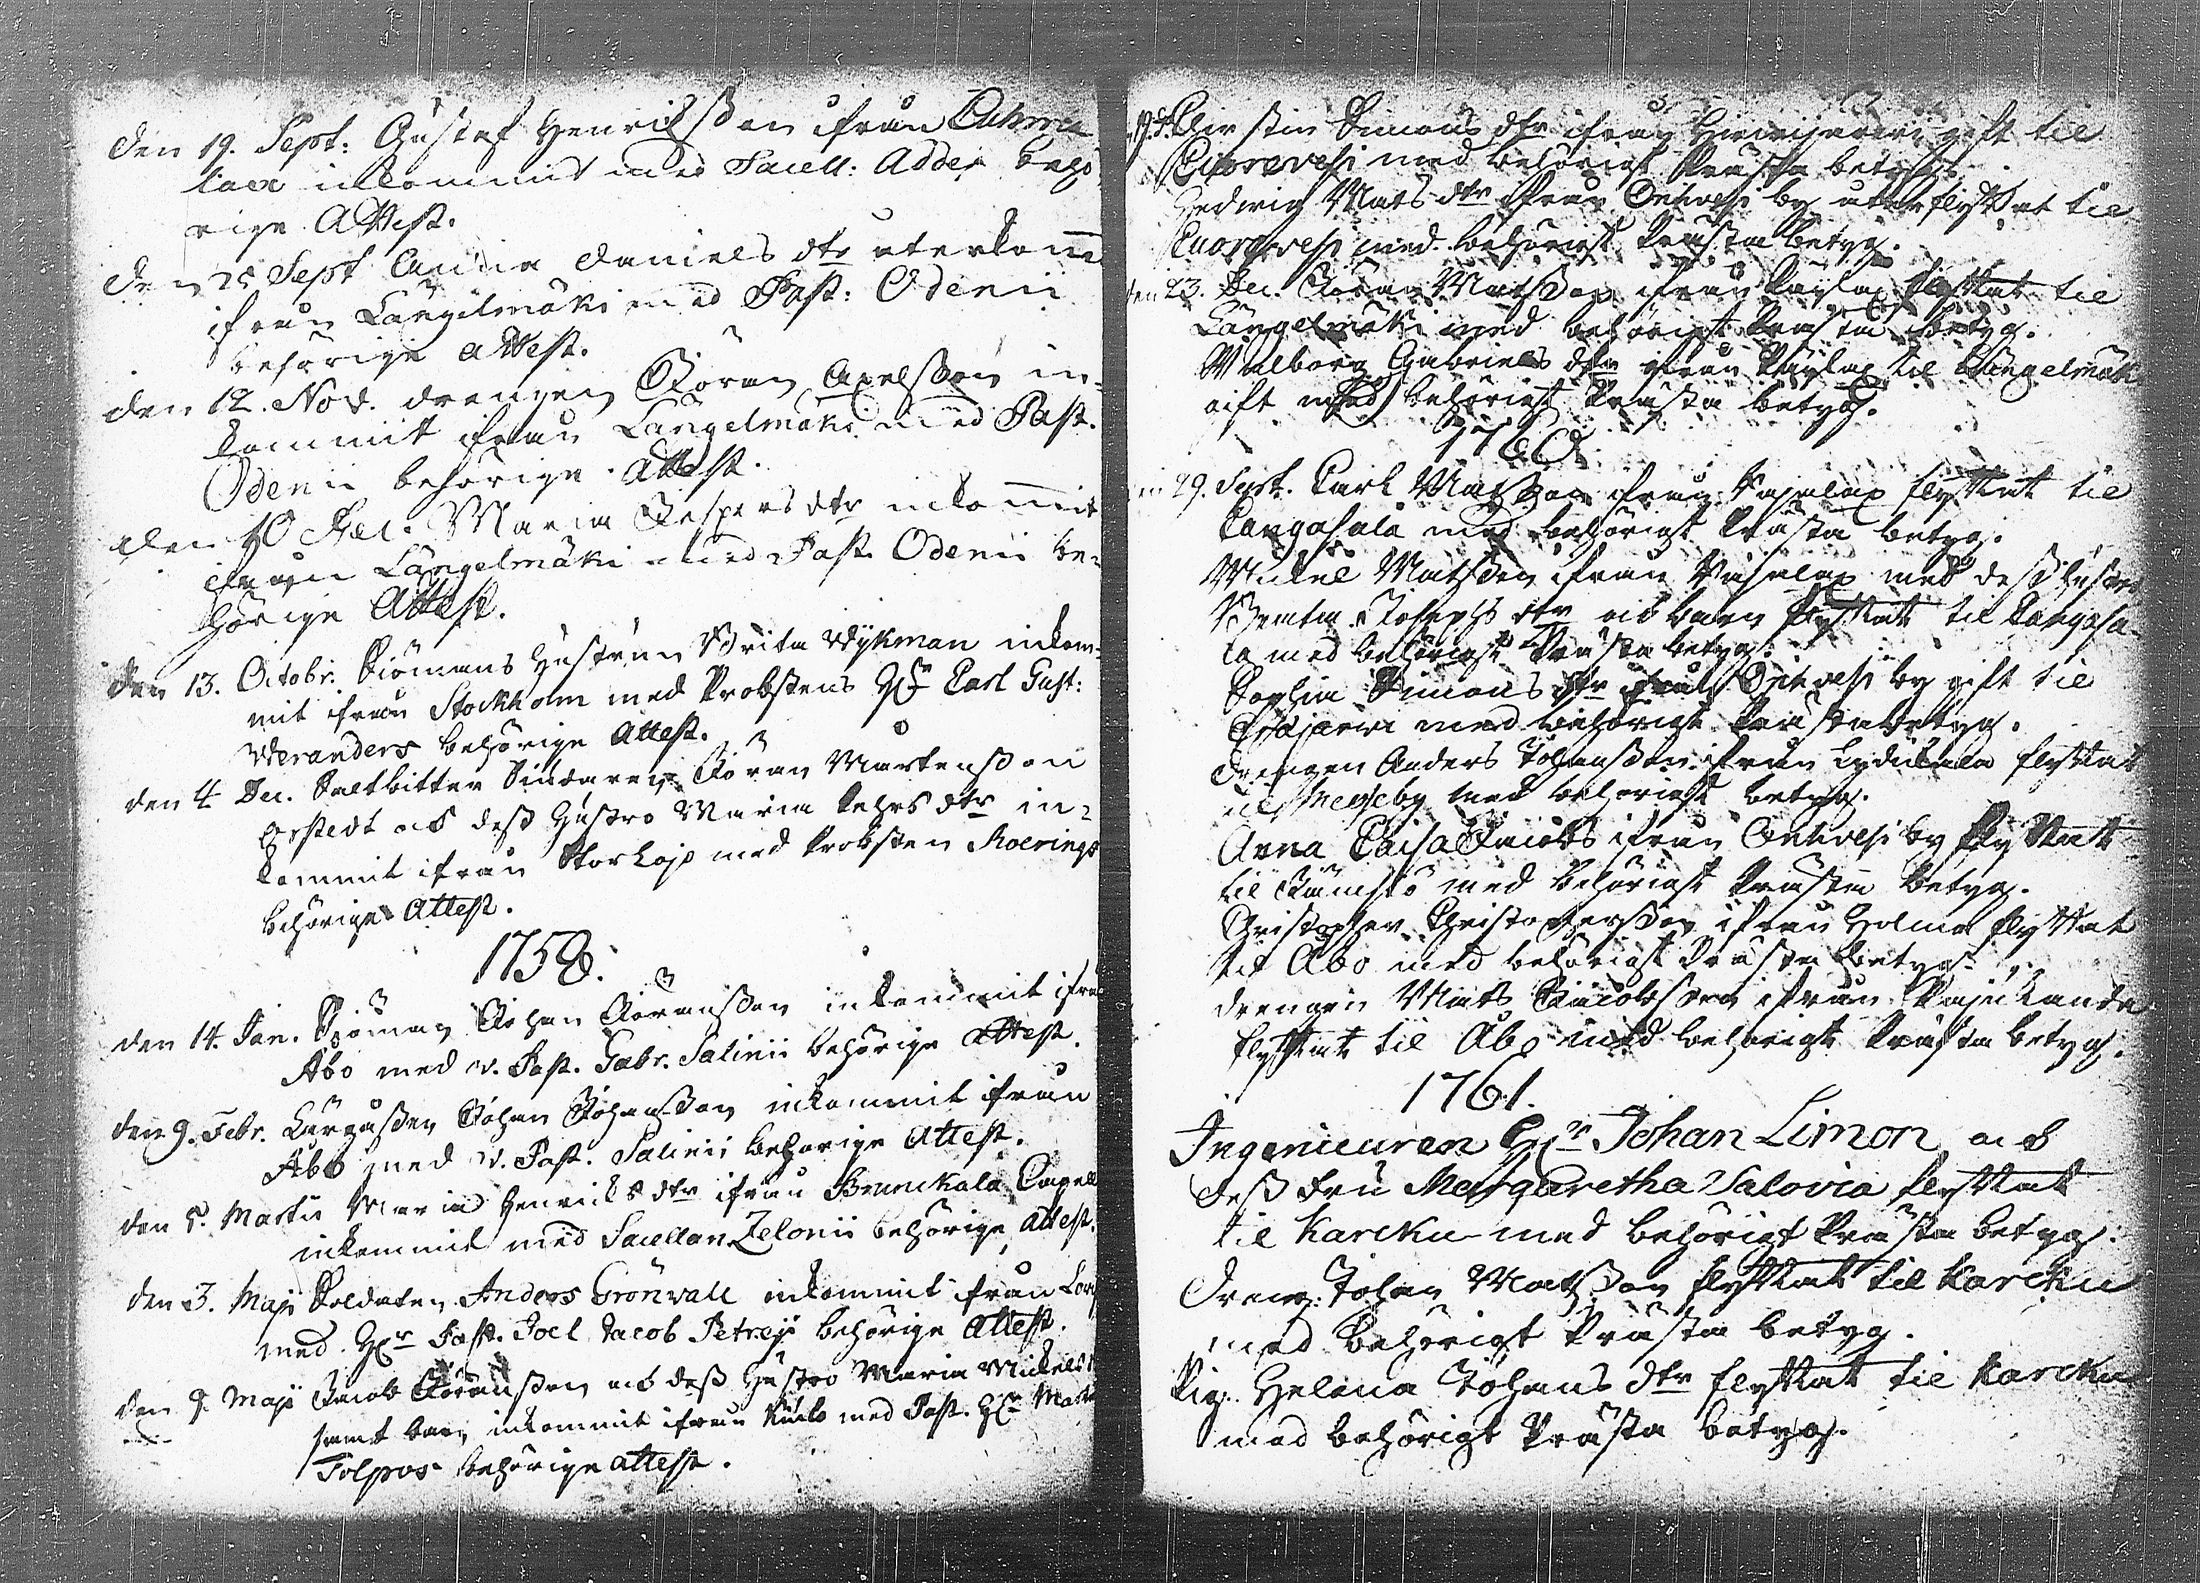 den 19. Sept: Gustaf Henrichsson ifrån Cuhma
lax inkommit med Sacell: Adde behö
rige Attest.
den 25 Sept Daniels dtr återkom̅
ifrån Längelmäki med Past: Odenii
behörige attest.
den 12. Nov. drengen Jöran Axelsson in-
kommit ifrån Längelmäki med Past.
Odenii behörige Attest.
den Maria Jespersdtr inkom̅it
ifrån Längelmäki med Past. Odenii be-
hörige Attest.
den 13. Octobr. Siömans Hustrun Brita Wykman inkom-
mit ifrån Stockholm med Probstens Hr Carl Gust:
Weranders behörige Attest.
den 4 Dec. Saltbitter Siudaren Jöran Martensson
Örstedt och dess Hustro Maria Pehrs dtr in-
kommit ifrån Storlojo med Probsten Roerings
behörige Attest.
1758.
den 14. Jan. Sjöman Johan Jöransson inkommit ifrå
Åbo med v. Past. Gabr. Salinii behörige Attest.
den 9. Febr. Johan Johansson inkommit ifrån
Åbo med v. Past. Salinii behörige Attest.
den 5. Martii Maria Henrichs dtr ifrån Brunckala Capell
inkommit med Sacellan Zelonii behörige Attest.
den 3. Maji Soldaten Anders Grönvall inkommit ifrån
med Hr Past. Joel Jacob Petreji behörige Attest.
den 9. Maji Jacob Jöransson och dess Hustro Maria Mickels
samt barn inkommit ifrån med Past. Hr
Tolpos behörige attest.
Kirstin Simons dtr ifrån gift til
Cuorevesi med behörigt Prästa betyg.
Hedwig Mats dtr ifrån Onkvesi by återflyttat til
Cuorevesi med behörigt Prästa betyg.
den 23. Dec. Jöran Matsson ifrån flyttat til
Längelmäki med behörigt Prästa betyg.
Walborg Gabriels dtr ifrån til Längelmäki
gift med behörigt Prästa betyg.
1760
29. Sept. Carl Matsson ifrån Pajulax flyttat til
Cangasala med behörigt Prästa betyg.
Mickel Matsson ifrån Pajulax med dess hustro
Josephs dtr och barn flyttat til Cangasa-
la med behörigt Prästa betyg.
Sophia Simons dtr ifrån Onkvesi by gift til
med behörigt Prästa betyg.
drengen Anders Johansson ifrån flyttat
til Messeby med behörigt betyg.
Anna Caisa Jacobs ifrån Onkvesi by flyttat
til Jämsö med behörigt Prästa betyg.
Christopher Christophersson ifrån Holma flyttat
til Åbo med behörigt Prästa betyg.
drengen Mats Jacobsson ifrån
flyttat til Åbo med behörigt Prästa betyg.
1761.
Ingenieuren Hr Johan Limon och
dess fru Margaretha Salovia flyttat
til Karcku med behörigt Prästa betyg.
Dreng. Johan Matsson flyttat til Karcku
med behörigt Prästa betyg.
Pig. Helena Johans dtr flyttat til Karcku
med behörigt Prästa betyg.